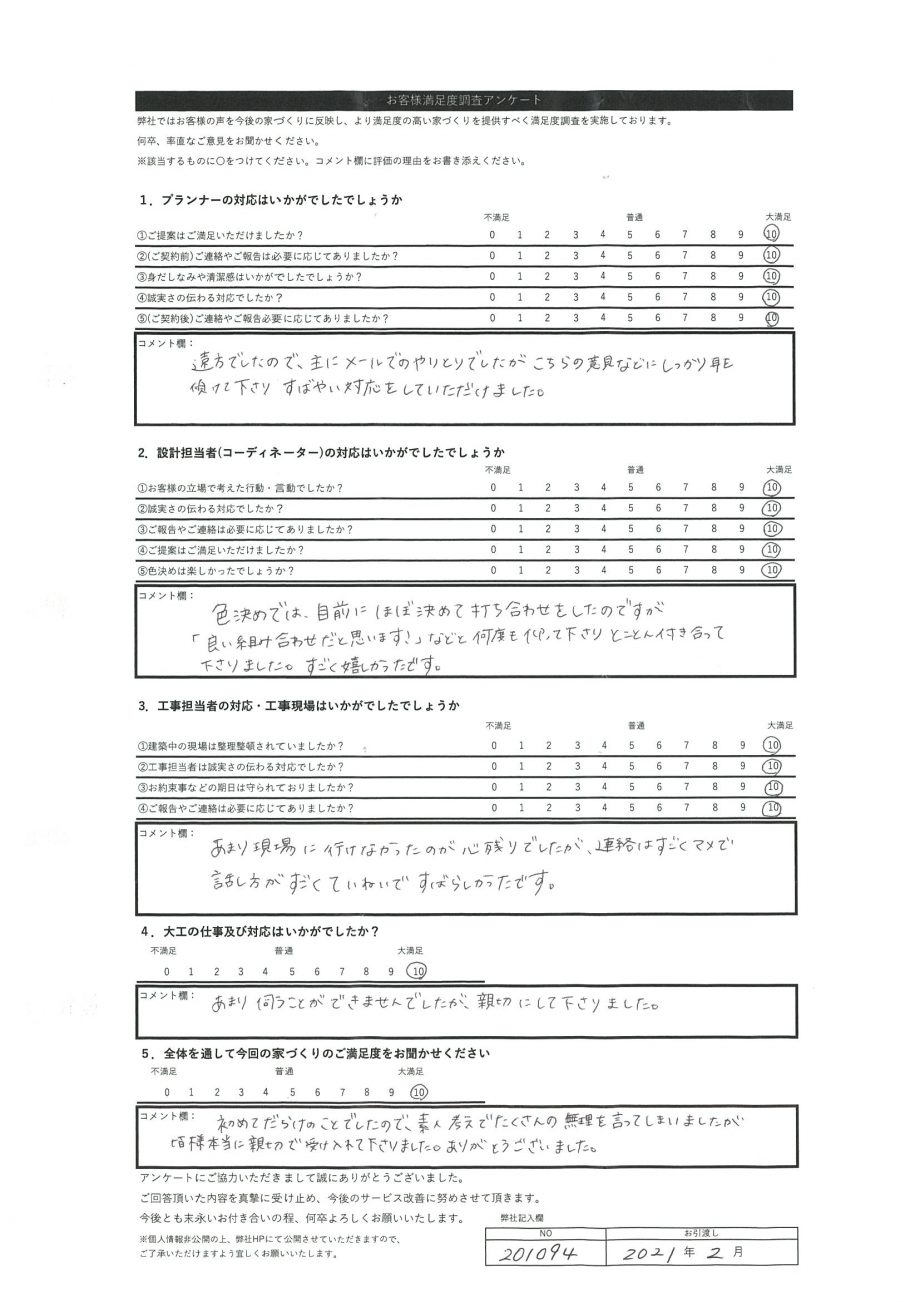 お客様満足度調査アンケート
弊社ではお客様の声を今後の家づくりに反映し、より満足度の高い家づくりを提供すべく満足度調査を実施しております。
何卒、率直なご意見をお聞かせください。
※該当するものに〇をつけてください。コメント欄に評価の理由をお書き添えください。
1．プランナーの対応はいかがでしたでしょうか
不満足 普通 大満足
①ご提案はご満足いただけましたか？ 0 1 2 3 4 5 6 7 8 9 10
②(ご契約前)ご連絡やご報告は必要に応じてありましたか？ 0 1 2 3 4 5 6 7 8 9 10
③身だしなみや清潔感はいかがでしたでしょうか？ 0 1 2 3 4 5 6 7 8 9 10
④誠実さの伝わる対応でしたか？ 0 1 2 3 4 5 6 7 8 9 10
⑤(ご契約後)ご連絡やご報告必要に応じてありましたか？ 0 1 2 3 4 5 6 7 8 9 10
コメント欄：
遠方でしたので、主にメールでのやりとりでしたが こちらの意見などにしっかり耳を
傾けて下さり すばやい対応をしていただけました。
2．設計担当者(コーディネーター)の対応はいかがでしたでしょうか
不満足 普通 大満足
①お客様の立場で考えた行動・言動でしたか？ 0 1 2 3 4 5 6 7 8 9 10
②誠実さの伝わる対応でしたか？ 0 1 2 3 4 5 6 7 8 9 10
③ご報告やご連絡は必要に応じてありましたか？ 0 1 2 3 4 5 6 7 8 9 10
④ご提案はご満足いただけましたか？ 0 1 2 3 4 5 6 7 8 9 10
⑤色決めは楽しかったでしょうか？ 0 1 2 3 4 5 6 7 8 9 10
コメント欄：
色決めでは、目前にほぼ決めて打ち合わせをしたのですが
「良い組み合わせだと思います!」などと何度も仰って下さりとことん付き合って
下さりました。すごく嬉しかったです。
3．工事担当者の対応・工事現場はいかがでしたでしょうか
不満足 普通 大満足
①建築中の現場は整理整頓されていましたか？ 0 1 2 3 4 5 6 7 8 9 10
②工事担当者は誠実さの伝わる対応でしたか？ 0 1 2 3 4 5 6 7 8 9 10
③お約束事などの期日は守られておりましたか？ 0 1 2 3 4 5 6 7 8 9 10
④ご報告やご連絡は必要に応じてありましたか？ 0 1 2 3 4 5 6 7 8 9 10
コメント欄：
あまり現場に行けなかったのが心残りでしたが、連絡はすごくマメで
話し方がすごくていねいですばらしかったです。
4．大工の仕事及び対応はいかがでしたか？
不満足 普通 大満足
0 1 2 3 4 5 6 7 8 9 10
コメント欄：
あまり伺うことができませんでしたが、親切にして下さりました。
5．全体を通して今回の家づくりのご満足度をお聞かせください
不満足 普通 大満足
0 1 2 3 4 5 6 7 8 9 10
コメント欄：
初めてだらけのことでしたので、素人考えでたくさんの無理を言ってしまいましたが
皆様本当に親切で受け入れて下さりました。ありがとうございました。
アンケートにご協力いただきまして誠にありがとうございました。
ご回答頂いた内容を真摯に受け止め、今後のサービス改善に努めさせて頂きます。
今後とも末永いお付き合いの程、何卒よろしくお願いいたします。
※個人情報非公開の上、弊社HPにて公開させていただきますので、
ご了承いただけますよう宜しくお願いいたします。
弊社記入欄
NO お引渡し
201094 2021年2月